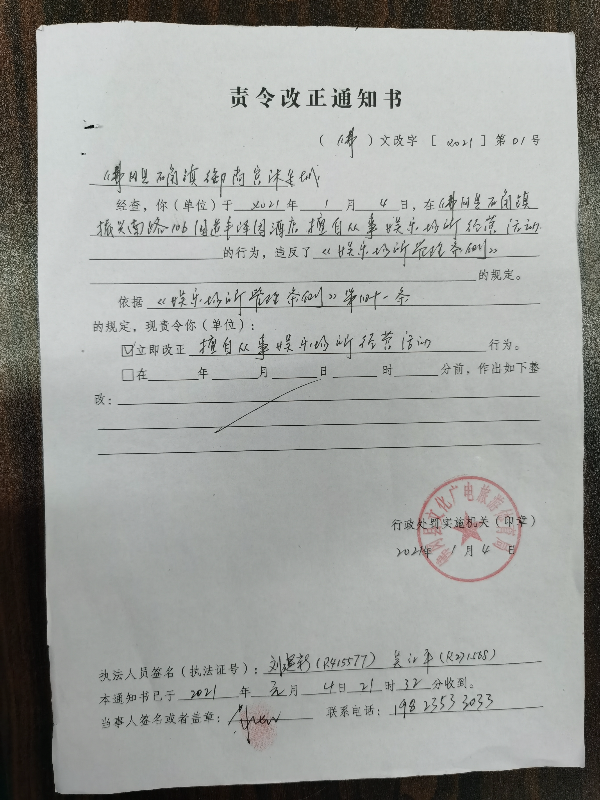 责令改正通知书
（佛）文改字［2021］第01号
佛冈县石角镇御尚宫沐足城
经查，你（单位）于2021年1月4日，在佛冈县石角镇
振兴南路106国道丰洋园酒店擅自从事娱乐场所经营活动
的行为，违反了《娱乐场所管理条例》
的规定。
依据《娱乐场所管理条例》第四十一条
的规定，现责令你（单位）：
☑立即改正 擅自从事娱乐场所经营活动 行为。
☐在 年 月 日 时 分前，作出如下整
改：
行政处罚实施机关（印章）
佛冈县文化广电旅游体育局
2021年1月4日
执法人员签名（执法证号）：（R415577）（R271568）
本通知书已于2021年元月4日21时32分收到。
当事人签名或者盖章： 联系电话：198 2353 3033